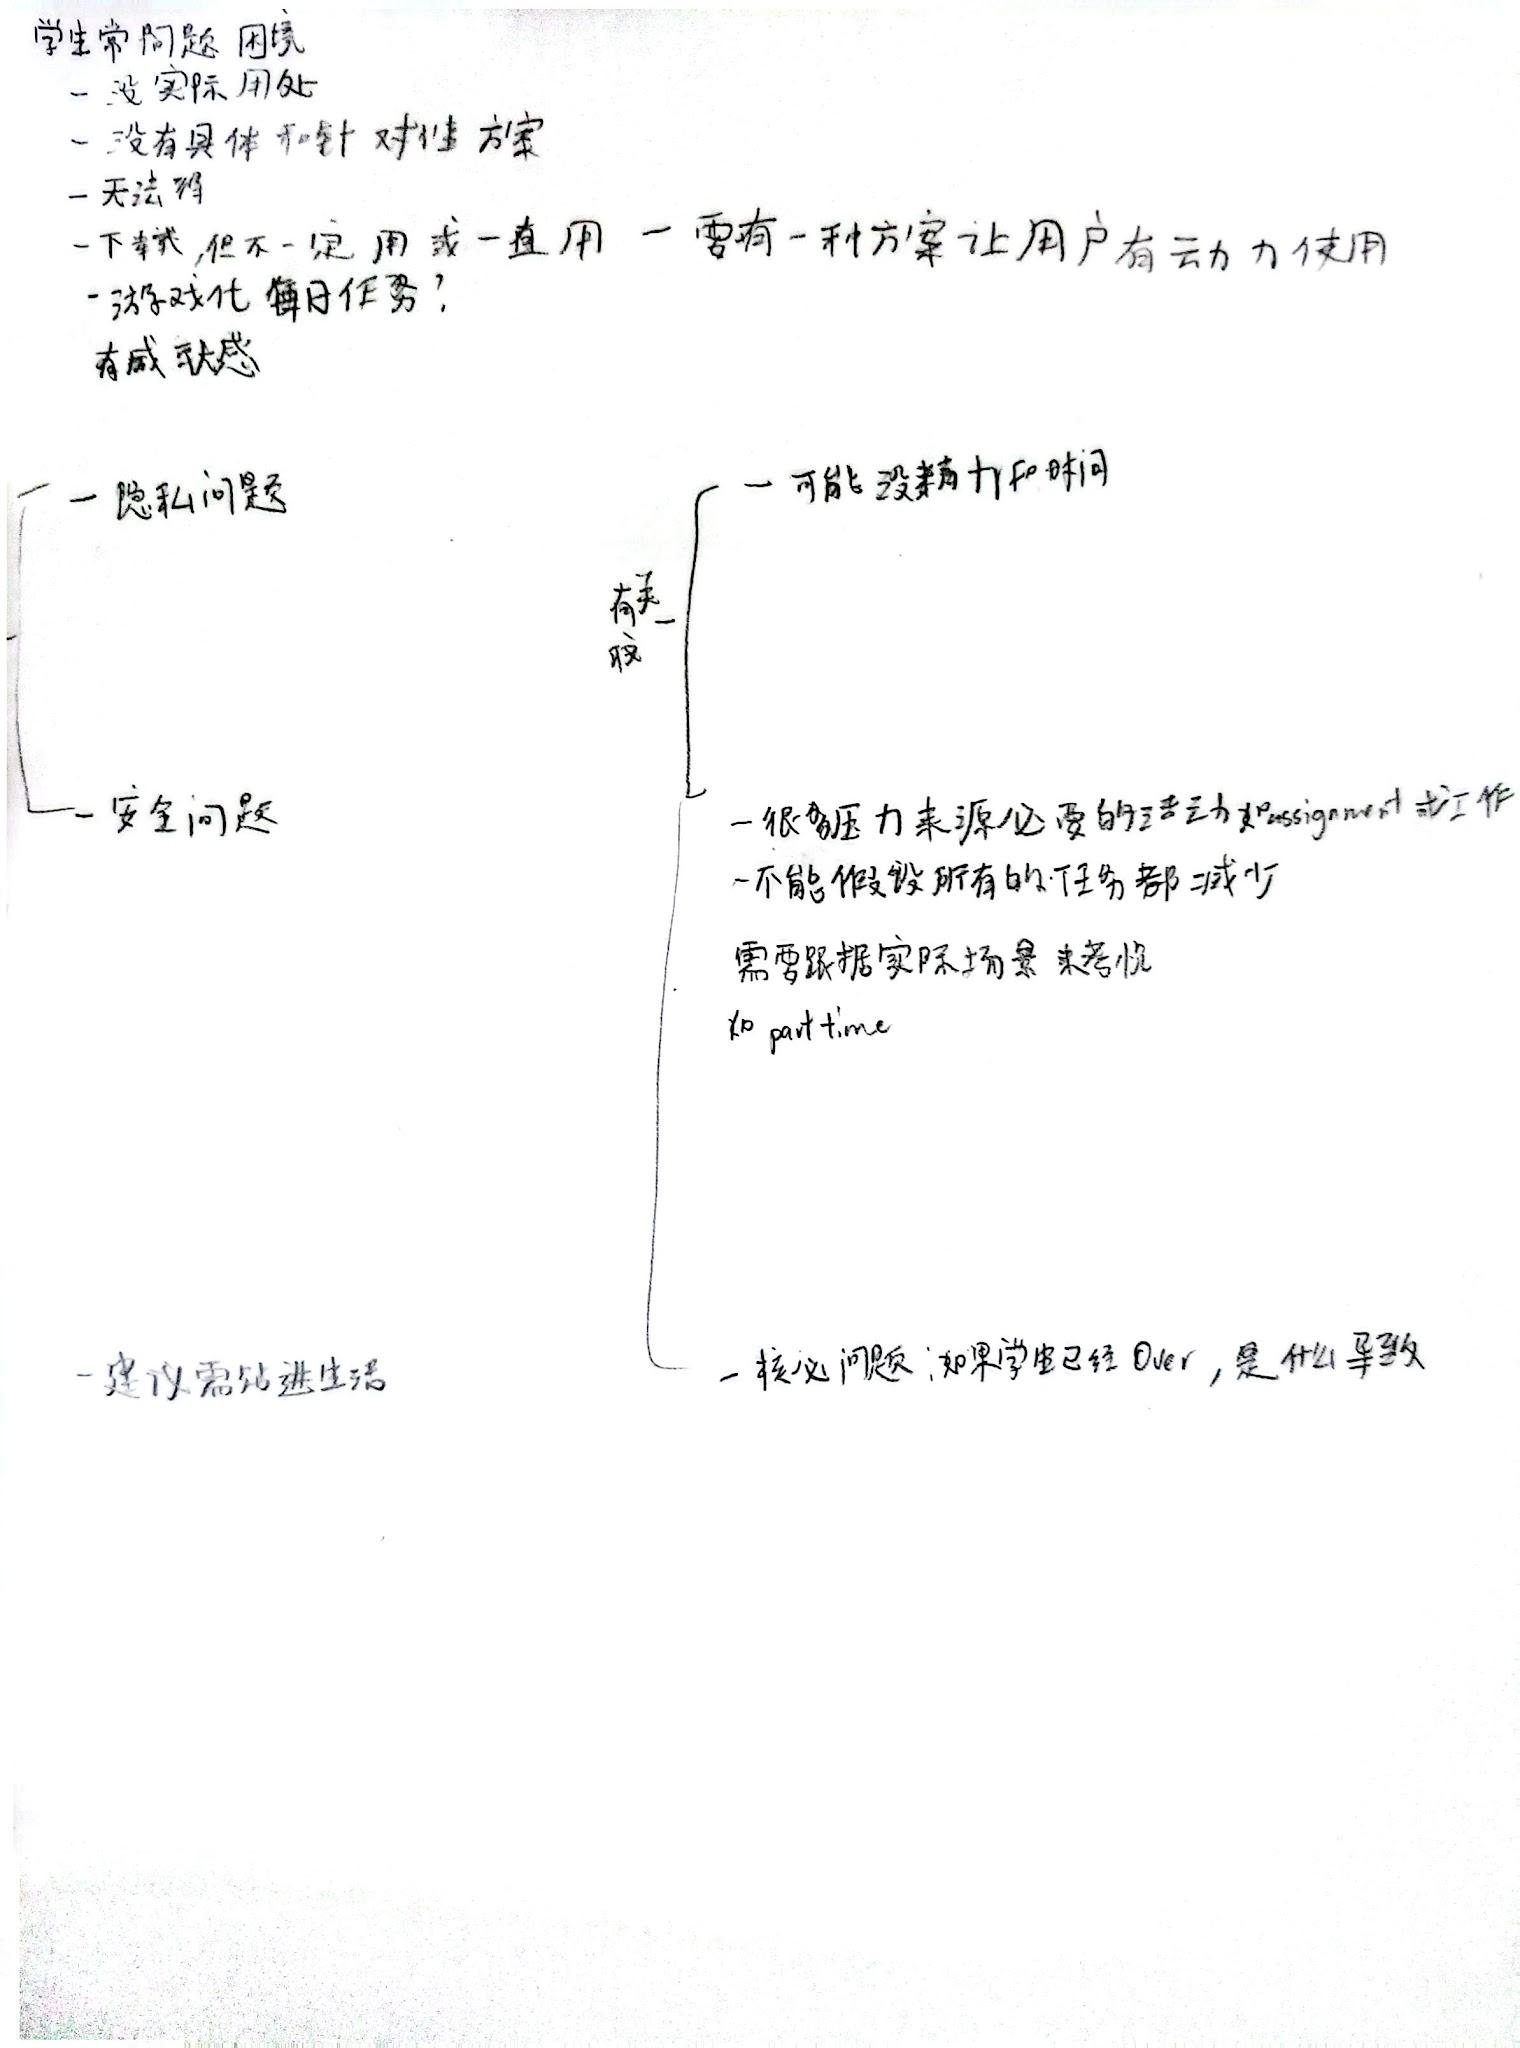 学生常问题 困境
- 没实际用处
- 没有具体和针对性方案
- 无法
- 下载,但不一定用或一直用 - 需有一种方案让用户有动力使用
- 游戏化 每日任务?
有成就感
- 隐私问题
- 安全问题
- 建议需贴近生活
有关
- 可能没精力和时间
- 很多压力来源必要的活动如assignment或工作
- 不能假设所有的任务都减少
需要跟据实际场景来考虑
如 part time
- 核心问题:如果学生已经Over,是什么导致